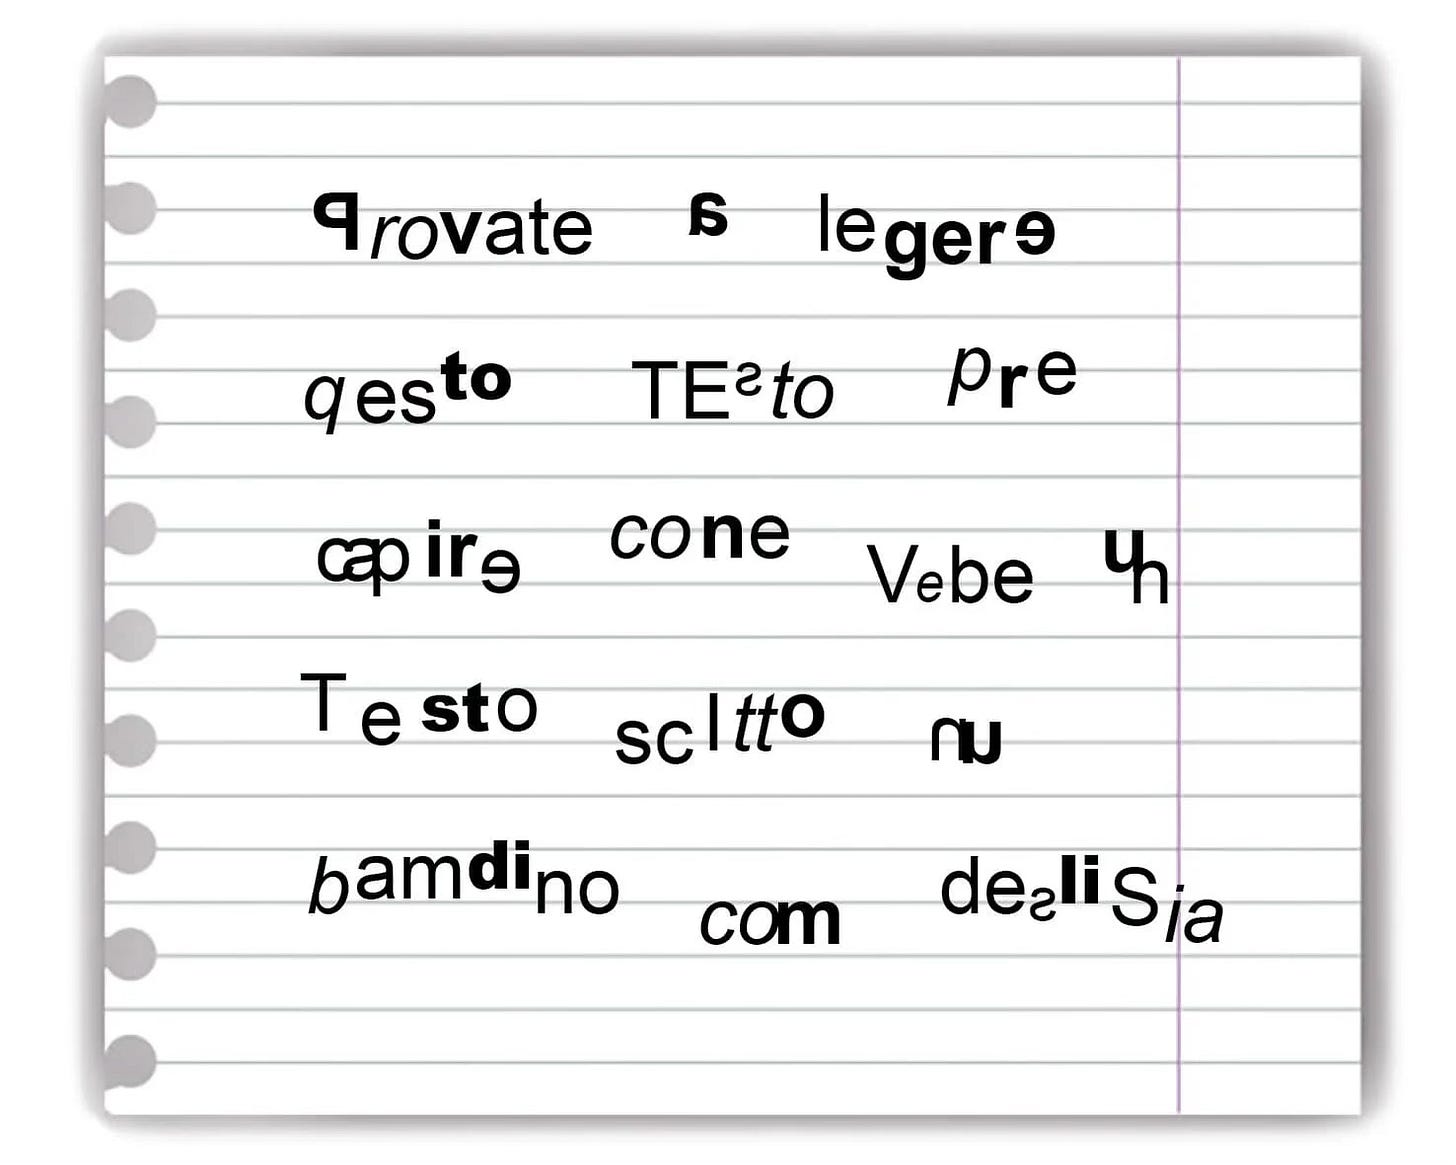 Provate a legere
qesto TEsto pre
capire cone Vebe un
Testo scItto nu
bamdino com desliSia